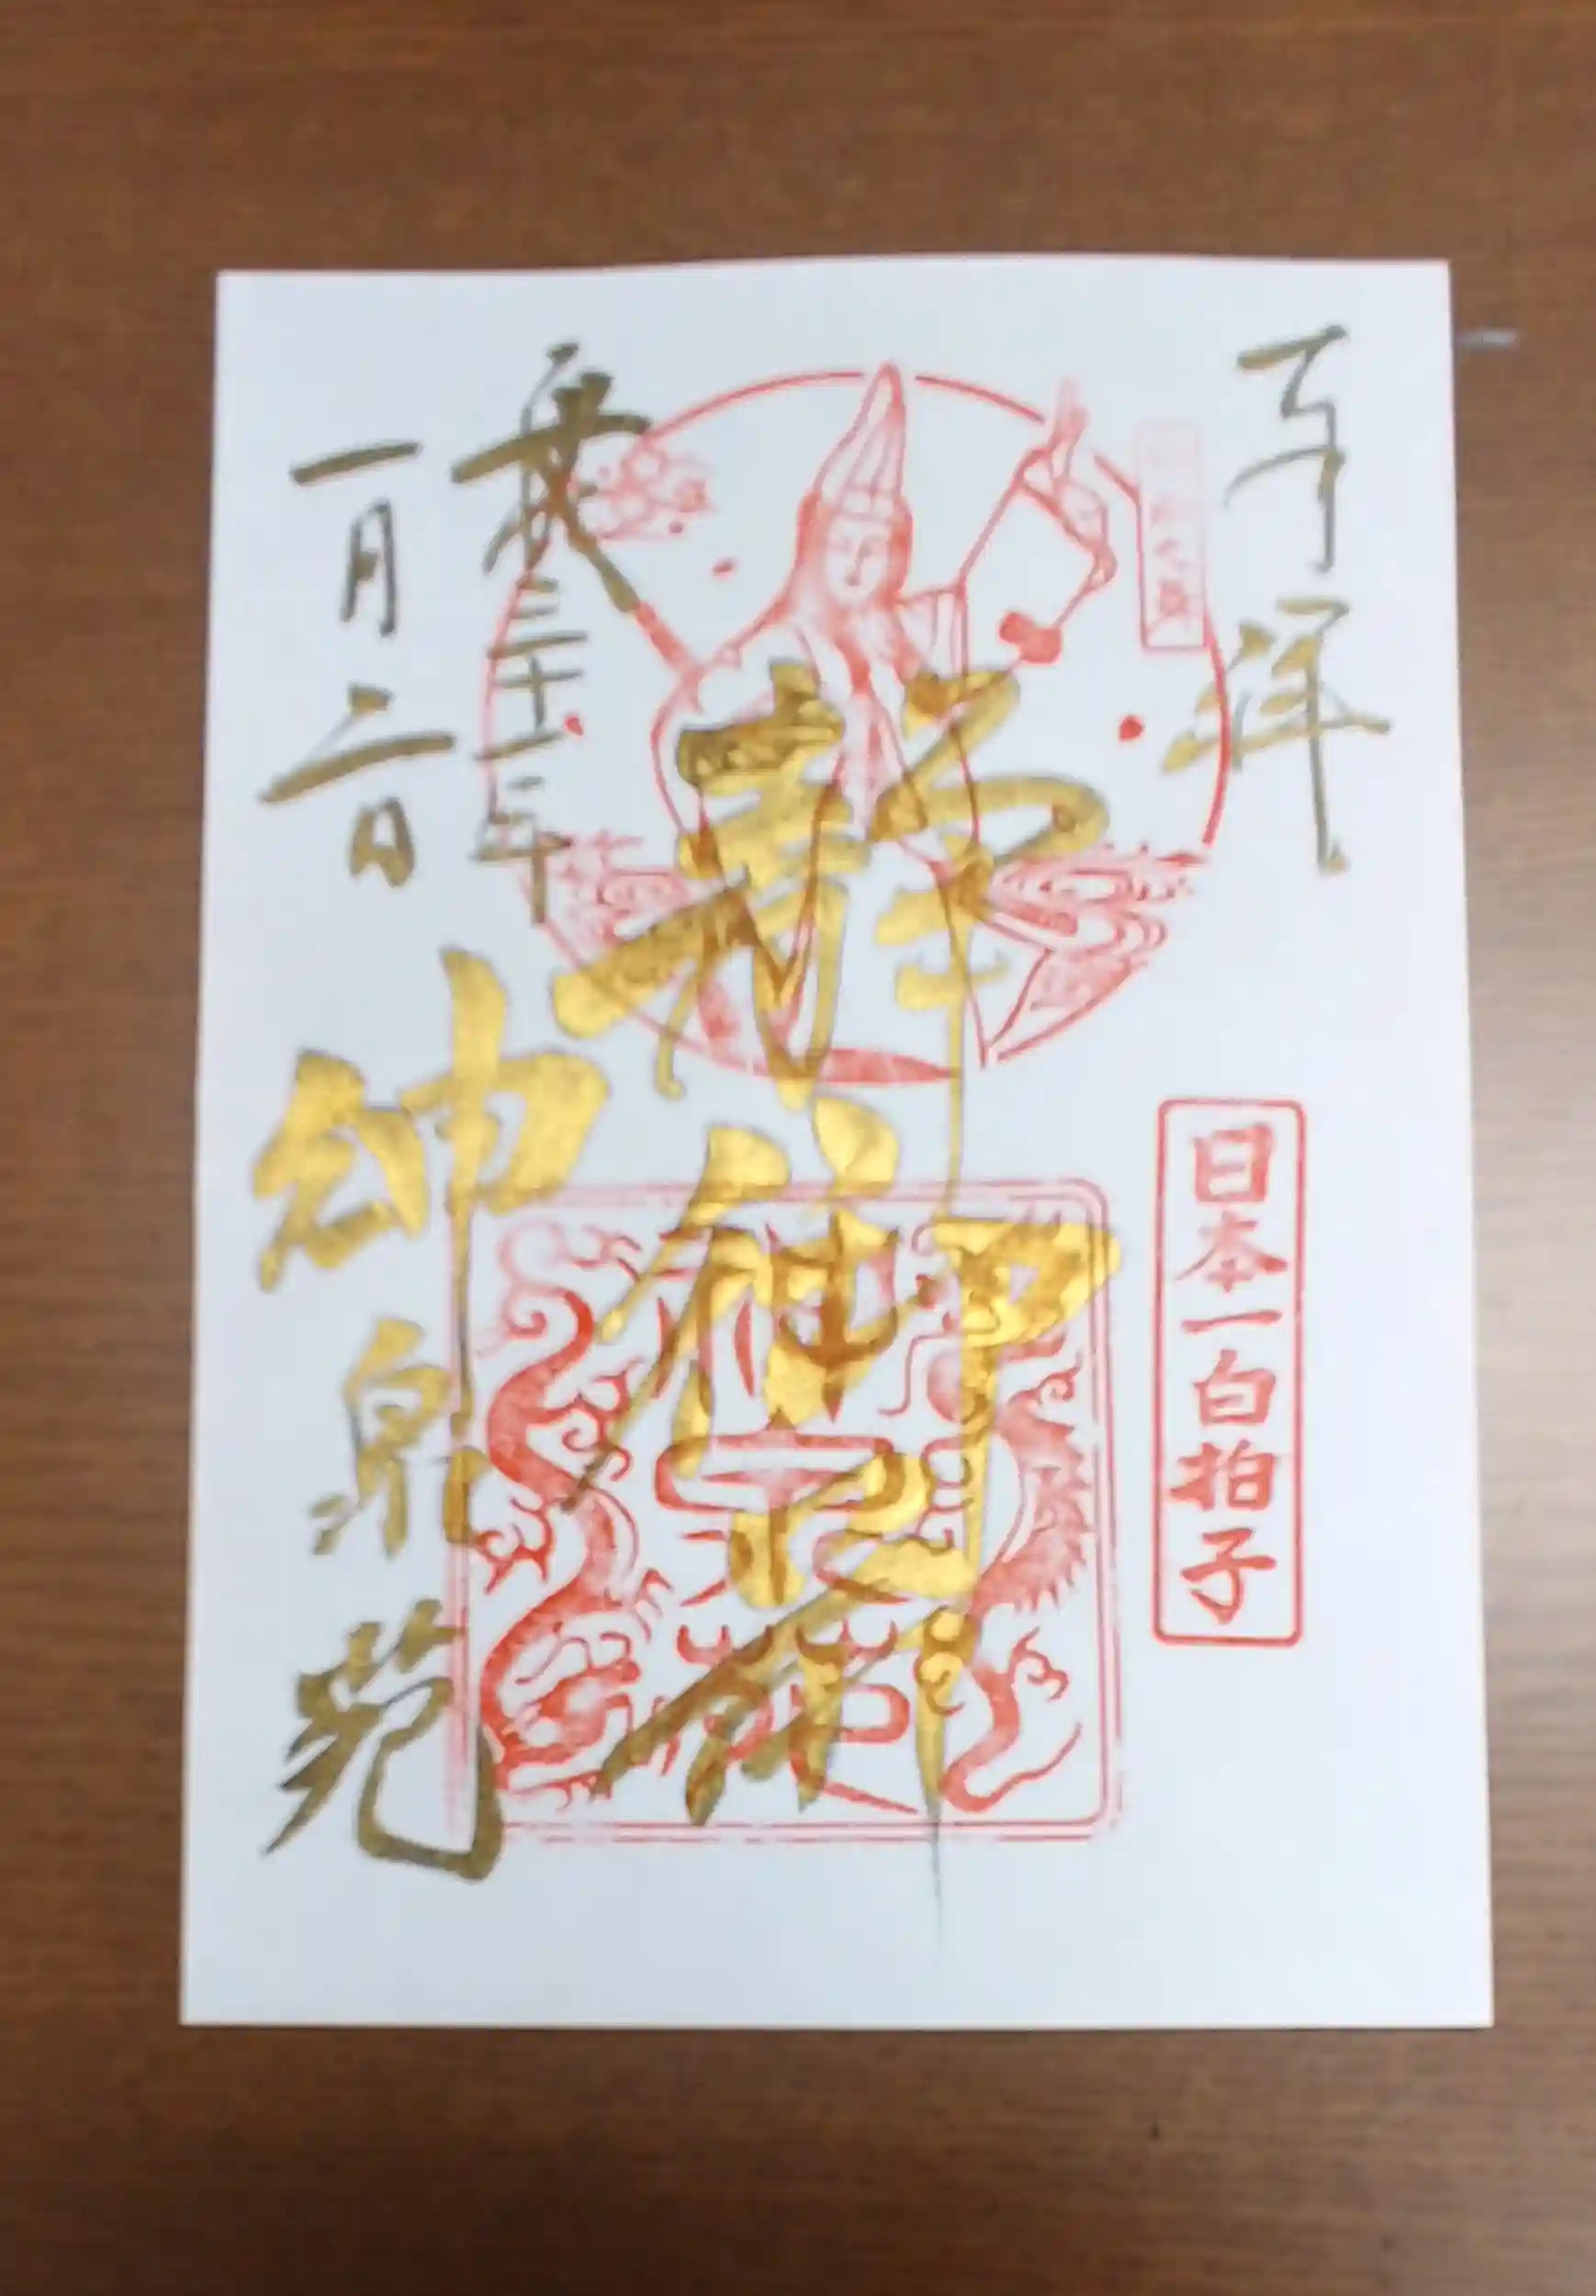 奉拝
日本一白拍子
静御前
平成三十一年
一月二日
神泉苑